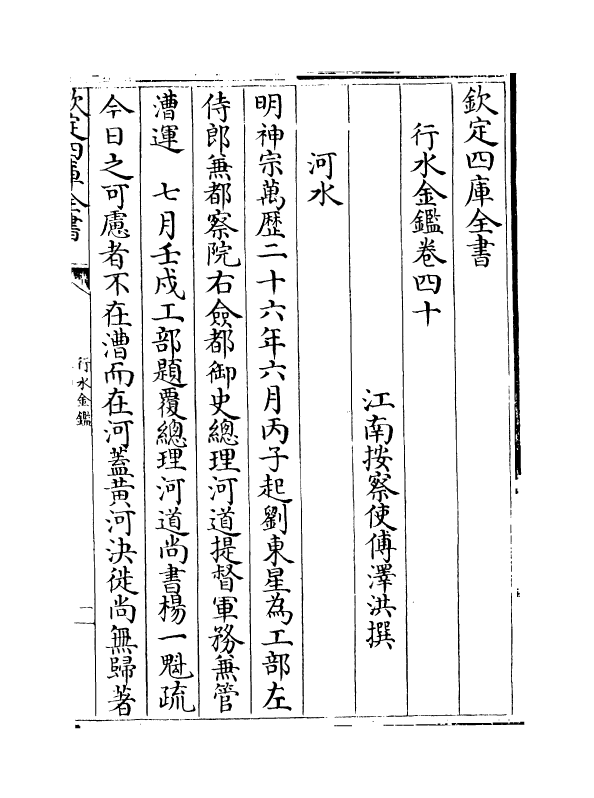 欽定四庫全書
行水金鑑卷四十
江南按察使傅澤洪撰
河水
明神宗萬歷二十六年六月丙子起劉東星為工部左
侍郎兼都察院右僉都御史總理河道提督軍務兼管
漕運　七月壬戍工部題覆總理河道尚書楊一魁疏
今日之可慮者不在漕而在河蓋黃河決徙尚無歸著
欽定四庫全書
行水金鑑
一